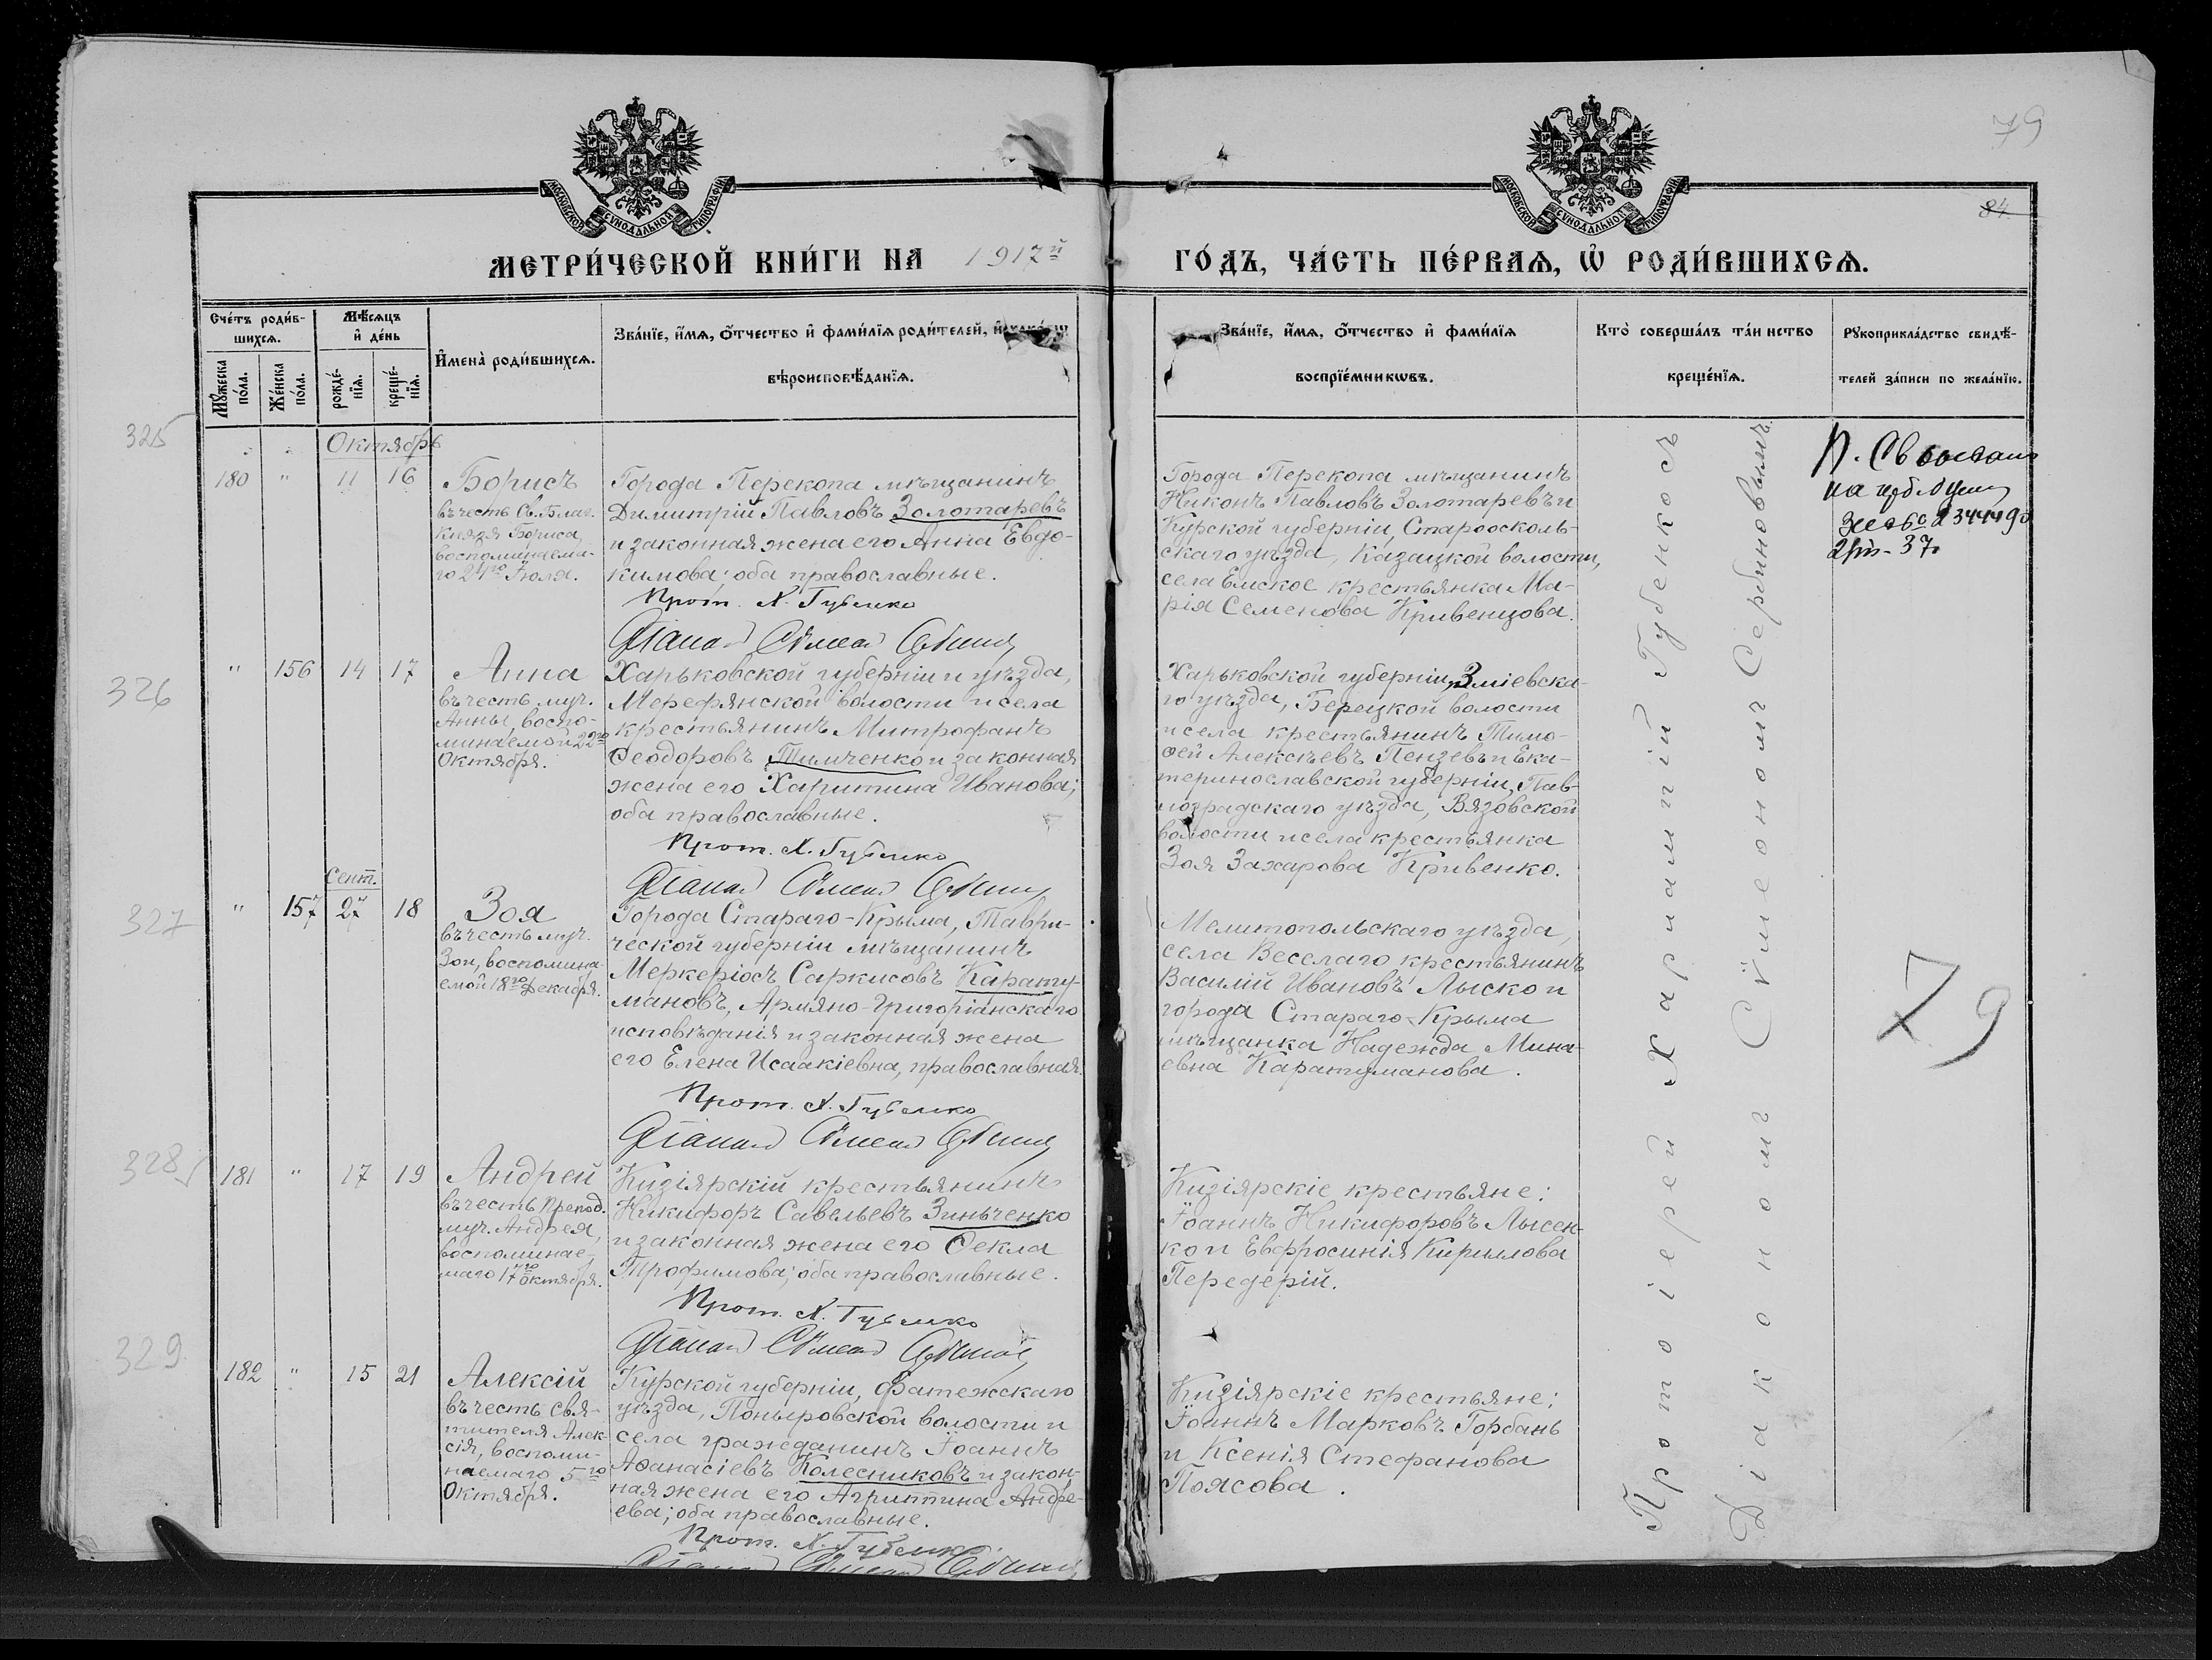 79
84
МОСКОВСКОЙ СУНОДАЛЬНОЙ ТИПОГРАФІИ
МОСКОВСКОЙ СУНОДАЛЬНОЙ ТИПОГРАФІИ
МЕТРИ́ЧЕСКОЙ КНИ́ГИ НА 1917й
ГО́ДЪ, ЧА́СТЬ ПЕ́РВАѦ, Ѡ҆ РОДИ́ВШИХСѦ.
Сче́тъ роди́в-
шихсѧ.
Мꙋ́жеска по́ла.
Же́нска по́ла.
Мѣ́сѧцъ
и҆ де́нь
рожде́-
нїѧ.
креще́-
нїѧ.
И҆мена̀ роди́вшихсѧ.
Зва́нїе, и҆́мѧ, ѻ҆́тчество и҆ фами́лїѧ роди́телей,
вѣроисповѣ́данїѧ.
Зва́нїе, и҆́мѧ, ѻ҆́тчество и҆ фами́лїѧ
воспрїе́мникѡвъ.
Кто̀ соверша́лъ та́инство
креще́нїѧ.
Рꙋкоприкла́дство свидѣ́-
телей за́писи по жела́нїю.
325
Октябрь
180 " 11 16
Борисъ
въ честь Св. Благ.
Князя Бориса,
воспоминаема-
го 24го Іюля.
Города Перекопа мѣщанинъ
Димитрій Павловъ Золотаревъ
и законная жена его Анна Евдо-
кимова; оба православные.
Прот. Х. Губенко
Діакон Сѵмеон
Города Перекопа мѣщанинъ
Никонъ Павловъ Золотаревъ и
Курской губерніи, Староосколь-
скаго уѣзда, Казацкой волости,
села Емское крестьянка Ма-
рія Семенова Кривенцова.
37
326
" 156 14 17
Анна
въ честь муч.
Анны, воспо-
минаемой 22го
Октября.
Харьковской губерніи и уѣзда,
Мерефянской волости и села
крестьянинъ Митрофанъ
Ѳеодоровъ Тимченко и законная
жена его Харитина Иванова;
оба православные.
Прот. Х. Губенко
Діакон Сѵмеон
Харьковской губерніи, Зміевска-
го уѣзда, Берецкой волости
и села крестьянинъ Тимо-
ѳей Алексѣевъ Пензевъ и Ека-
теринославской губерніи, Пав-
лоградскаго уѣзда, Вязовской
волости и села крестьянка
Зоя Захарова Кривенко.
327
Сент.
" 157 27 18
Зоя
въ честь муч.
Зои, воспомина-
емой 18го Декабря.
Города Стараго-Крыма, Таври-
ческой губерніи мѣщанинъ
Меркеріосъ Саркисовъ Карату-
мановъ, Армяно-Григоріанскаго
исповѣданія и законная жена
его Елена Исаакіевна, православная.
Прот. Х. Губенко
Діакон Сѵмеон
Мелитопольскаго уѣзда,
села Веселаго крестьянинъ
Василій Ивановъ Лыско и
города Стараго-Крыма
мѣщанка Надежда Мина-
евна Каратуманова.
79
328
181 " 17 19
Андрей
въ честь Препод.
муч. Андрея,
воспоминае-
маго 17го Октября.
Кизіярскій крестьянинъ
Никифоръ Савельевъ Зинченко
и законная жена его Ѳекла
Трофимова; оба православные.
Прот. Х. Губенко
Діакон Сѵмеон
Кизіярскіе крестьяне:
Іоаннъ Никифоровъ Лысен-
ко и Евфросинія Кирилова
Передерій.
329
182 " 15 21
Алексій
въ честь Свя-
тителя Алек-
сія, воспоми-
наемаго 5го
Октября.
Курской губерніи, Фатежскаго
уѣзда, Поныровской волости и
села гражданинъ Іоаннъ
Аѳанасіевъ Колесниковъ и закон-
ная жена его Агриппина Андре-
ева; оба православные.
Прот. Х. Губенко
Діакон Сѵмеон
Кизіярскіе крестьяне:
Іоаннъ Марковъ Горбань
и Ксенія Стефанова
Поясова.
Протоіерей Харлампій Губенко съ
Діакономъ Сѵмеономъ Сербиновымъ.